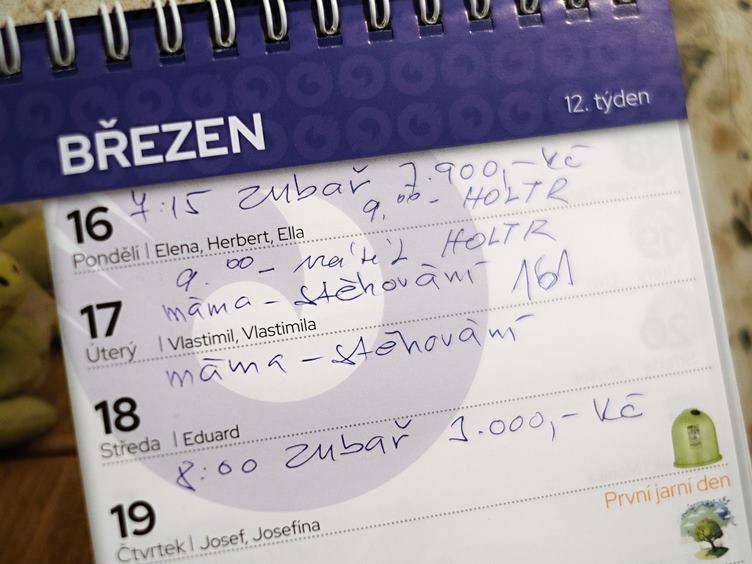 BŘEZEN
12. týden
16 7:15 zubař 7.900,-Kč
9.00 - HOLTR
Pondělí | Elena, Herbert, Ella
9.00 - HOLTR
17 máma - stěhování 161
Úterý | Vlastimil, Vlastimila
máma - stěhování
18
Středa | Eduard
8:00 zubař 1.000,- Kč
19
První jarní den
Čtvrtek | Josef, Josefína